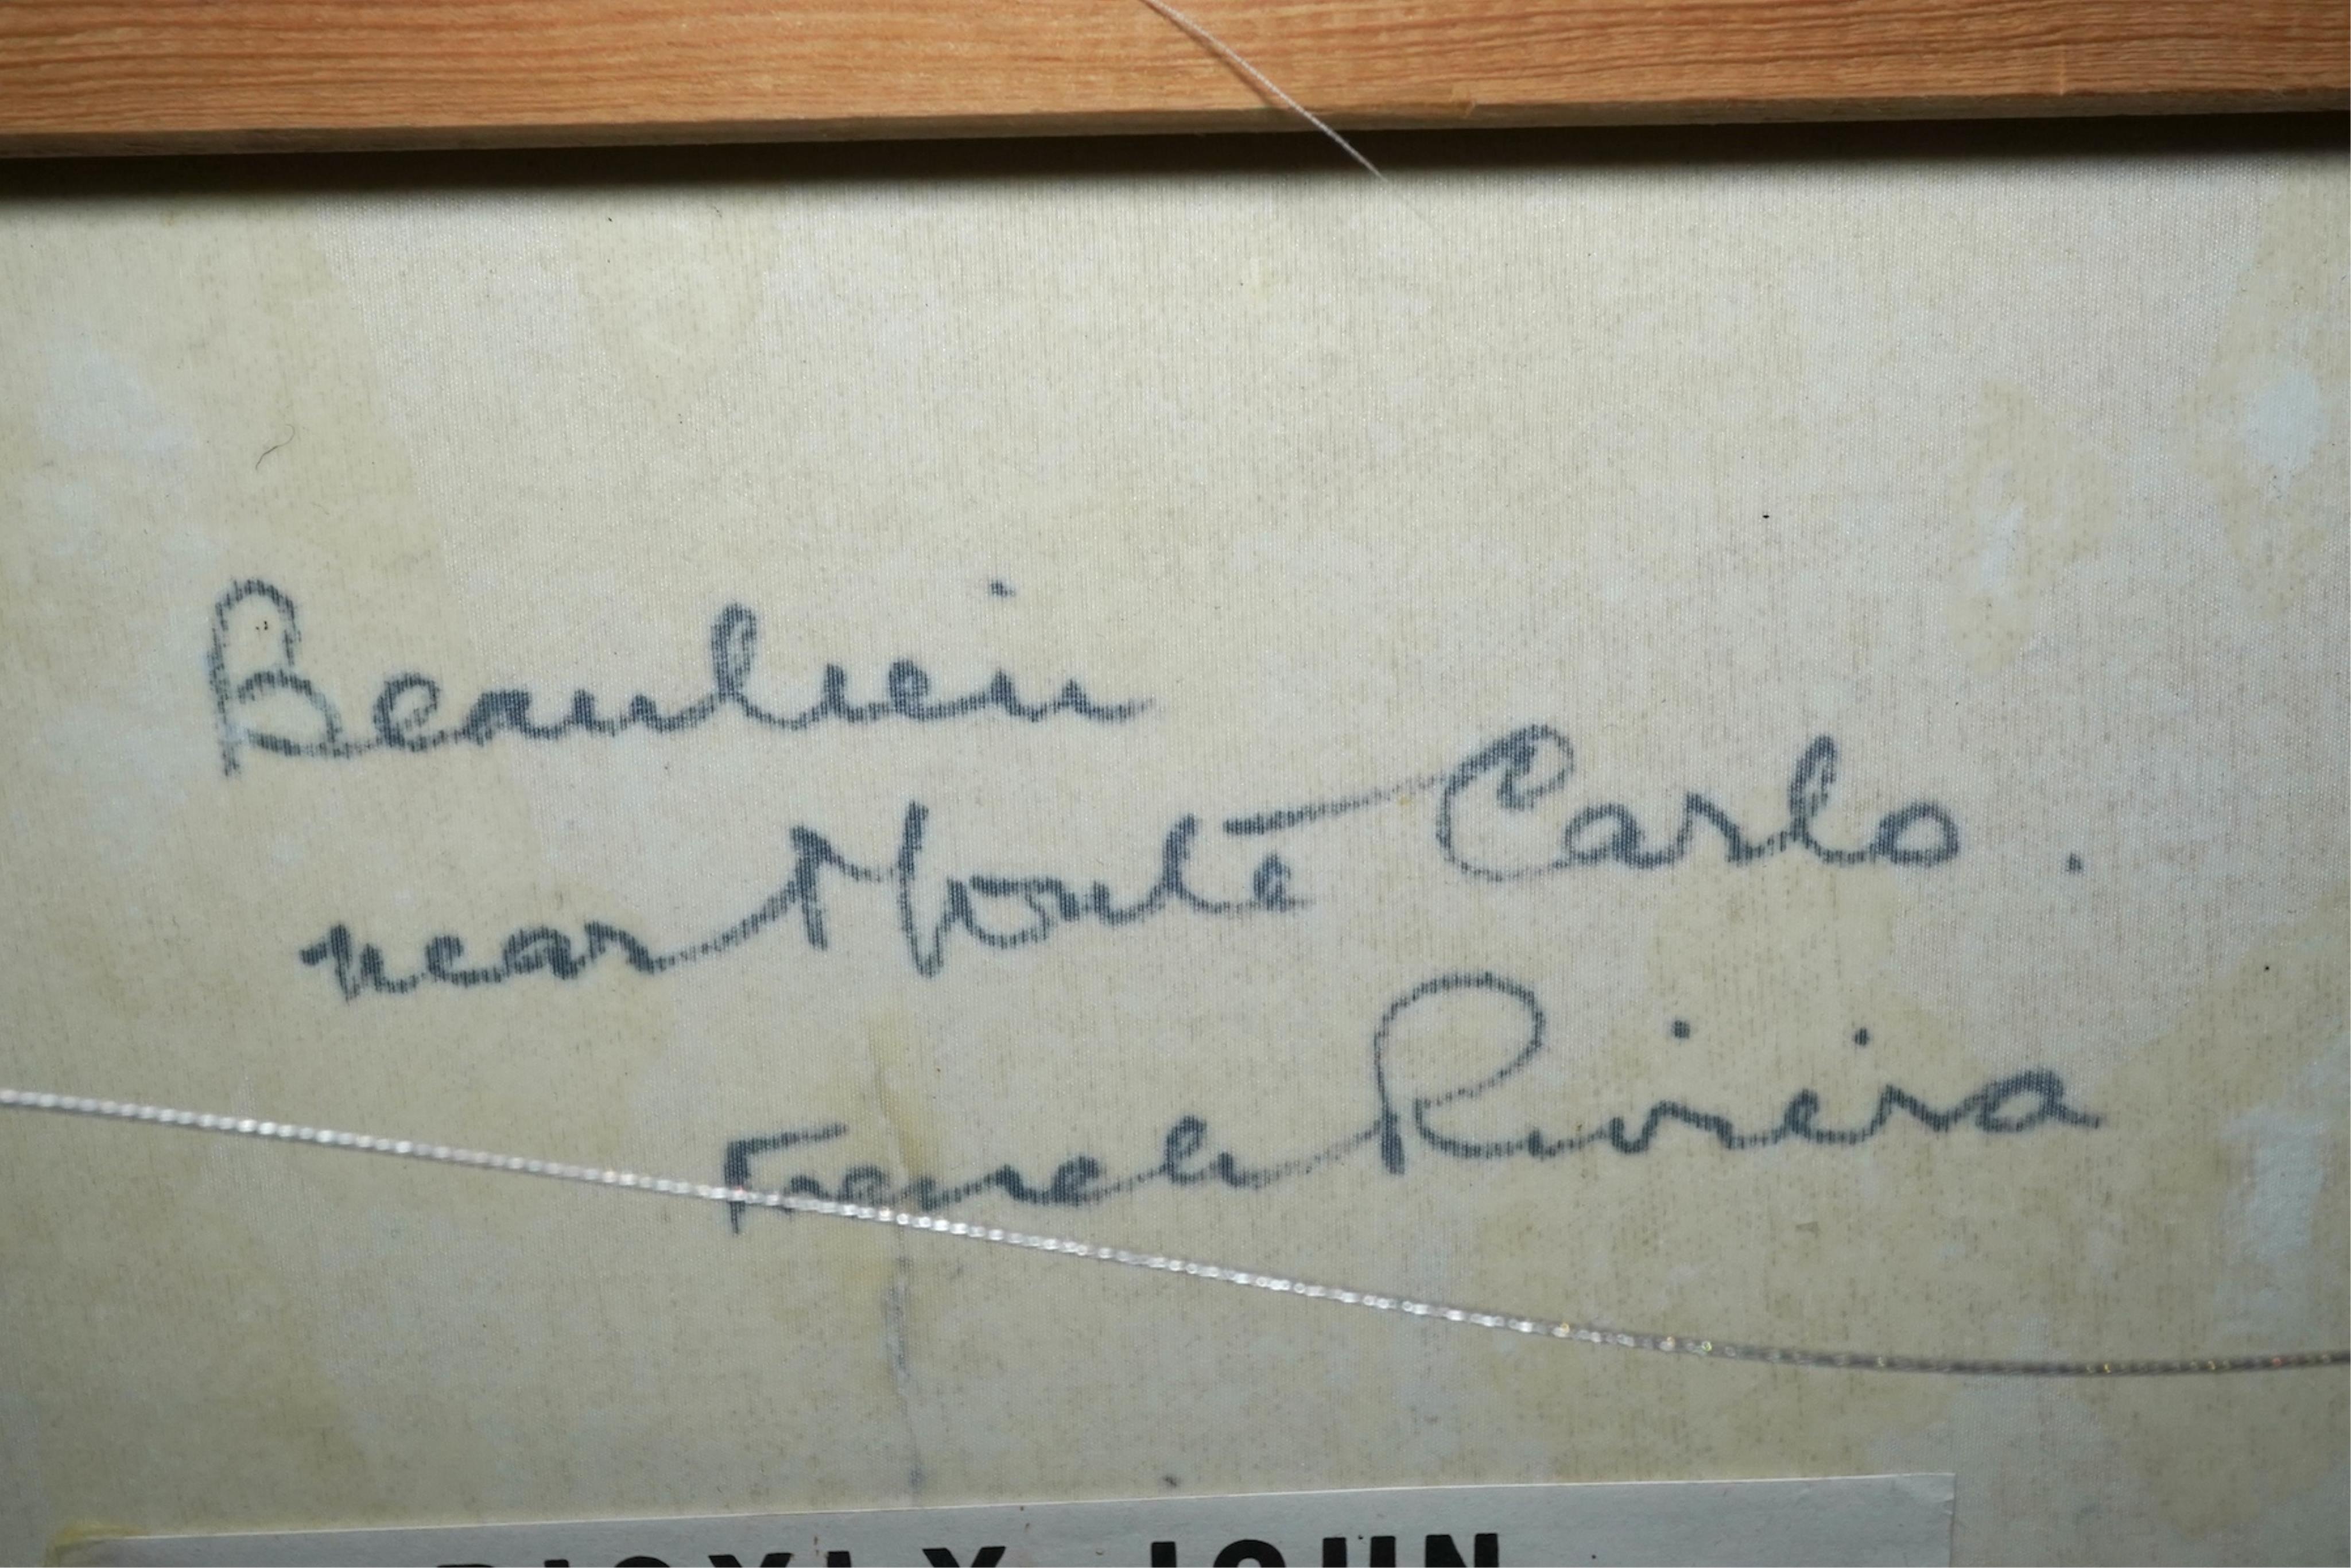 Beaulieu
near Monte Carlo.
French Riviera
JOHN